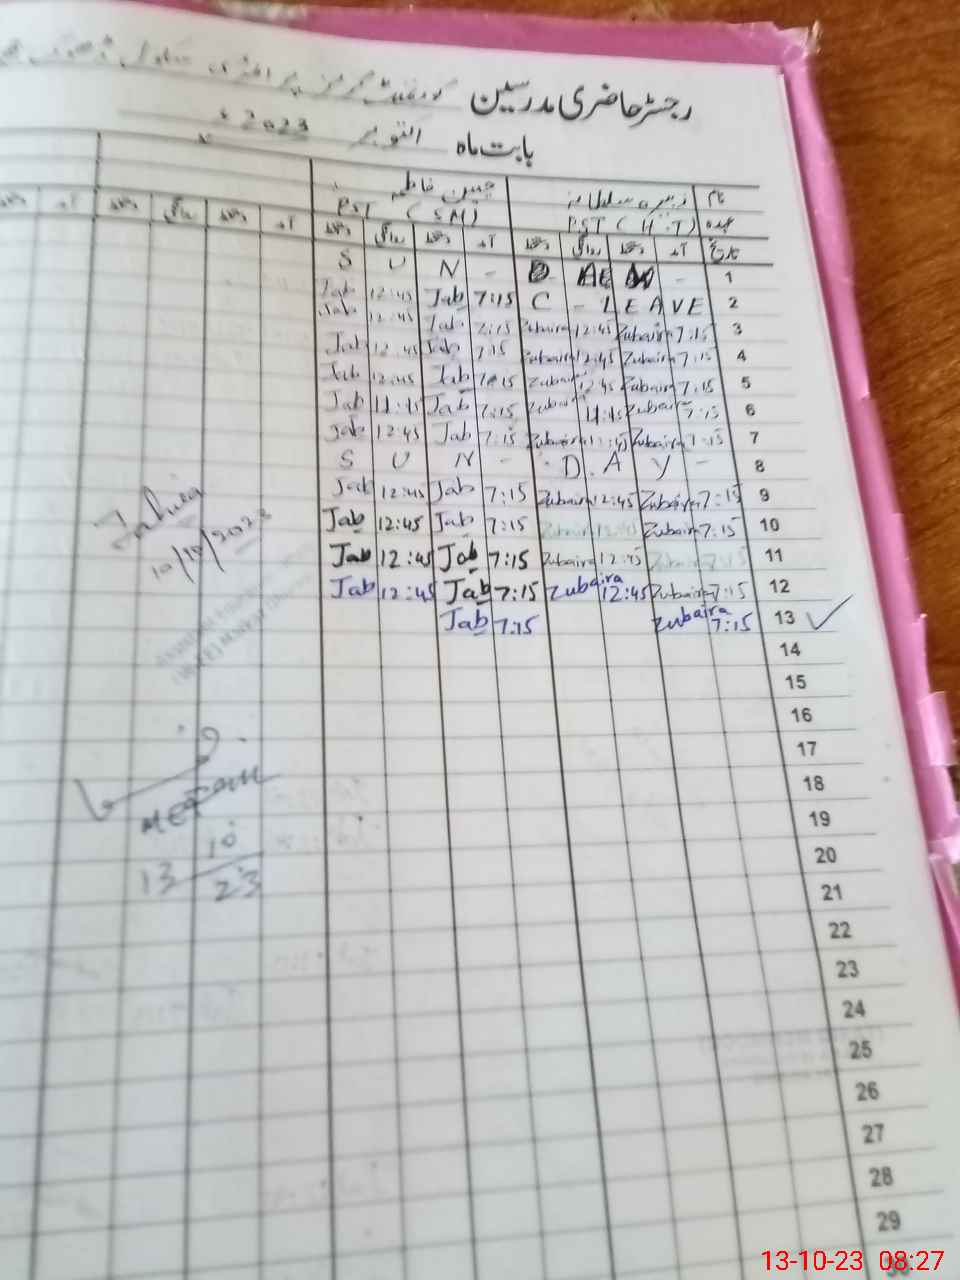 رجسٹر حاضری مدرسین گورنمنٹ گرلز پرائمری سکول
بابت ماہ اکتوبر 2023ء
نام زبیرہ سلطانہ جبین فاطمہ
عہدہ PST (H.T) PST (SM)
تاریخ آمد دستخط روانگی دستخط آمد دستخط روانگی دستخط آمد دستخط روانگی دستخط آمد
S U N - D - - 1
Jab 12:45 Jab 7:15 C - LEAVE 2
Jab 12:45 Jab 7:15 Zubaira 12:45 Zubaira 7:15 3
Jab 12:45 Jab 7:15 Zubaira 12:45 Zubaira 7:15 4
Jab 12:45 Jab 7:15 Zubaira 12:45 Zubaira 7:15 5
Jab 11:45 Jab 7:15 Zubaira 11:45 Zubaira 7:15 6
Jab 12:45 Jab 7:15 Zubaira 12:45 Zubaira 7:15 7
S U N - . D A Y - 8
Jab 12:45 Jab 7:15 Zubaira 12:45 Zubaira 7:15 9
Jab 12:45 Jab 7:15 Zubaira 12:45 Zubaira 7:15 10
Jab 12:45 Jab 7:15 Zubaira 12:45 Zubaira 7:15 11
Jab 12:45 Jab 7:15 Zubaira 12:45 Zubaira 7:15 12
Jab 7:15 Zubaira 7:15 13
10/10/2023
14
15
16
17
18
19
20
13 10/23
21
22
23
24
25
26
27
28
29
13-10-23 08:27